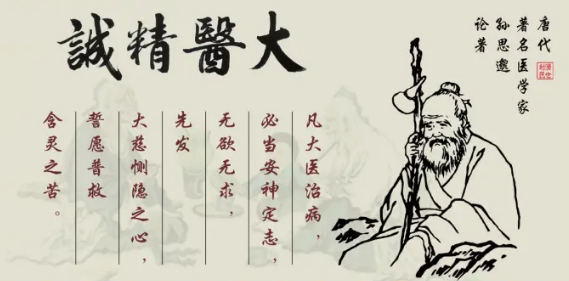 大醫精誠
唐代
著名医学家
孙思邈
论著
凡大医治病，
必当安神定志，
无欲无求，
先发
大慈恻隐之心，
誓愿普救
含灵之苦。